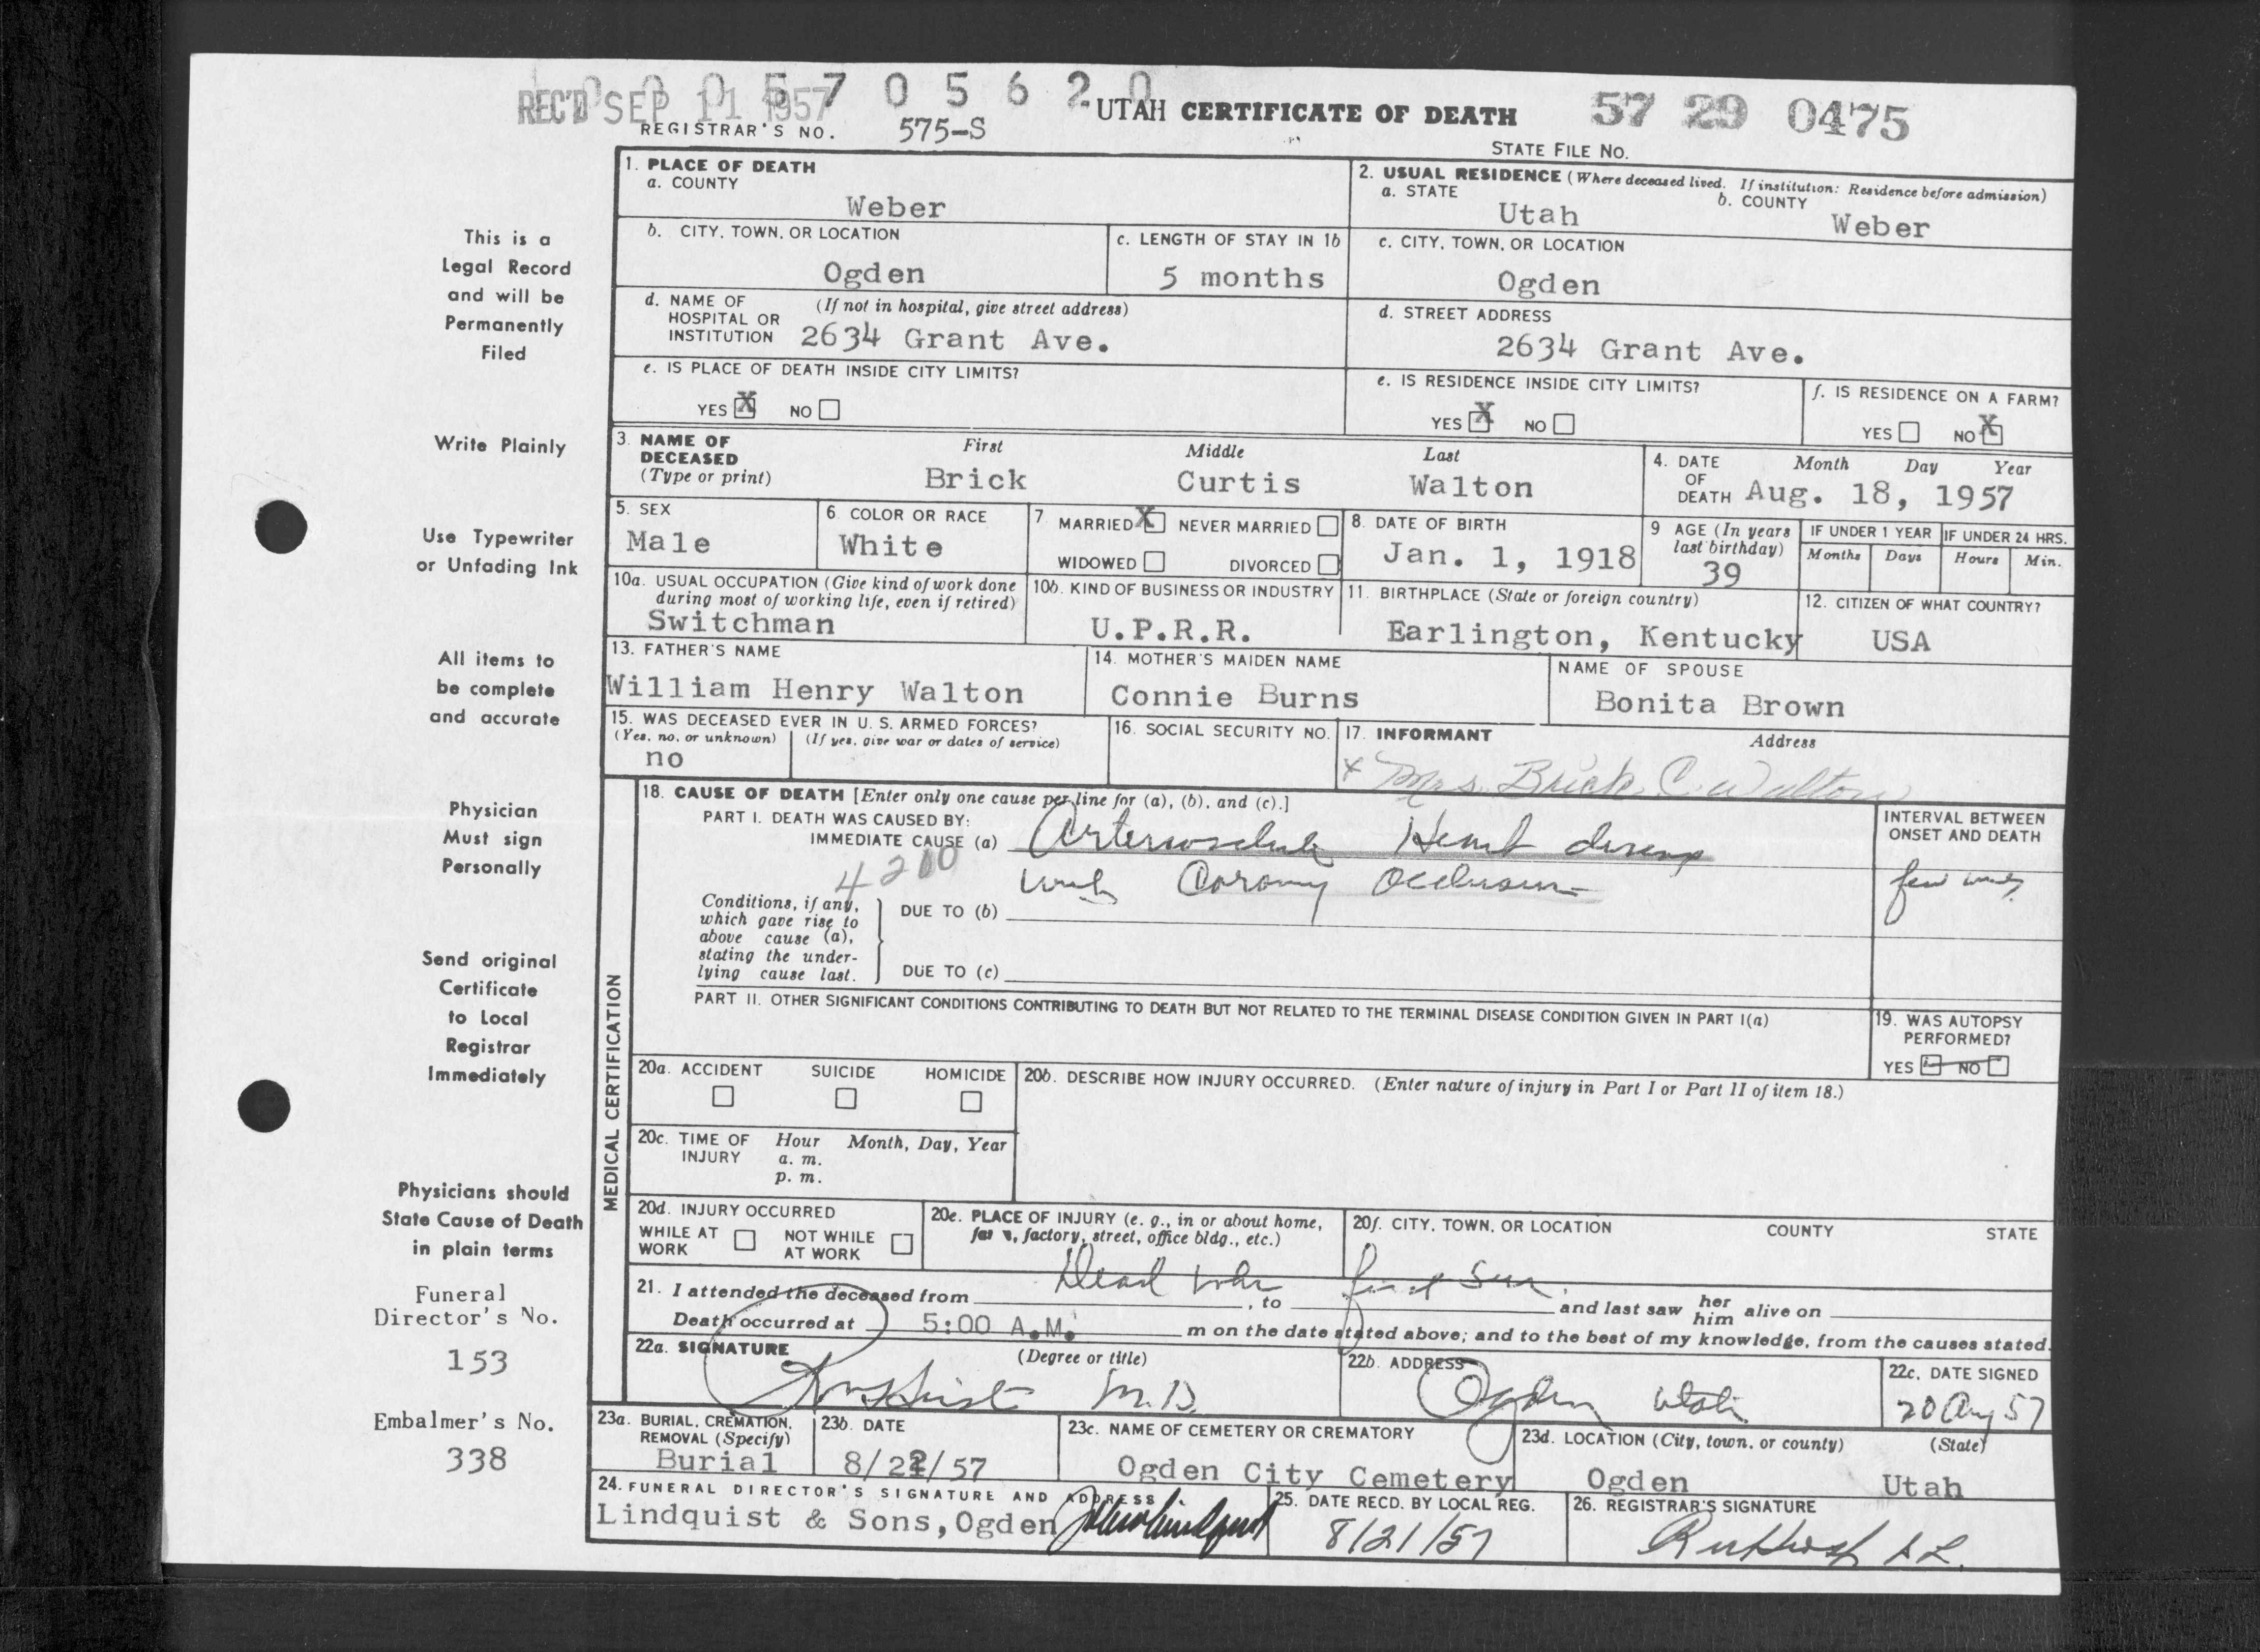 REC'D SEP 11 1957
0 0 0 5 7 0 5 6 2 0
UTAH CERTIFICATE OF DEATH
57 29 0475
REGISTRAR'S NO. 575-S
STATE FILE NO.
1. PLACE OF DEATH
a. COUNTY
Weber
2. USUAL RESIDENCE (Where deceased lived. If institution: Residence before admission)
a. STATE b. COUNTY
Utah Weber
b. CITY, TOWN, OR LOCATION
Ogden
c. LENGTH OF STAY IN 1b
5 months
c. CITY, TOWN, OR LOCATION
Ogden
d. NAME OF (If not in hospital, give street address)
HOSPITAL OR
INSTITUTION 2634 Grant Ave.
d. STREET ADDRESS
2634 Grant Ave.
e. IS PLACE OF DEATH INSIDE CITY LIMITS?
YES X NO
e. IS RESIDENCE INSIDE CITY LIMITS?
YES X NO
f. IS RESIDENCE ON A FARM?
YES NO X
3. NAME OF First Middle Last
DECEASED
(Type or print) Brick Curtis Walton
4. DATE Month Day Year
OF
DEATH Aug. 18, 1957
5. SEX
Male
6. COLOR OR RACE
White
7. MARRIED X NEVER MARRIED
WIDOWED DIVORCED
8. DATE OF BIRTH
Jan. 1, 1918
9 AGE (In years
last birthday)
39
IF UNDER 1 YEAR
Months Days
IF UNDER 24 HRS.
Hours Min.
10a. USUAL OCCUPATION (Give kind of work done
during most of working life, even if retired)
Switchman
10b. KIND OF BUSINESS OR INDUSTRY
U.P.R.R.
11. BIRTHPLACE (State or foreign country)
Earlington, Kentucky
12. CITIZEN OF WHAT COUNTRY?
USA
13. FATHER'S NAME
William Henry Walton
14. MOTHER'S MAIDEN NAME
Connie Burns
NAME OF SPOUSE
Bonita Brown
15. WAS DECEASED EVER IN U. S. ARMED FORCES?
(Yes, no, or unknown) (If yes, give war or dates of service)
no
16. SOCIAL SECURITY NO.
17. INFORMANT Address
x Mrs. Brick C. Walton
MEDICAL CERTIFICATION
18. CAUSE OF DEATH [Enter only one cause per line for (a), (b), and (c).]
PART I. DEATH WAS CAUSED BY:
IMMEDIATE CAUSE (a) Heart disease
4200
Coronary Occlusion
INTERVAL BETWEEN
ONSET AND DEATH
few
Conditions, if any,
which gave rise to
above cause (a),
stating the under-
lying cause last.
DUE TO (b)
DUE TO (c)
PART II. OTHER SIGNIFICANT CONDITIONS CONTRIBUTING TO DEATH BUT NOT RELATED TO THE TERMINAL DISEASE CONDITION GIVEN IN PART I(a)
19. WAS AUTOPSY
PERFORMED?
YES NO
20a. ACCIDENT SUICIDE HOMICIDE
20b. DESCRIBE HOW INJURY OCCURRED. (Enter nature of injury in Part I or Part II of item 18.)
20c. TIME OF Hour Month, Day, Year
INJURY a. m.
p. m.
20d. INJURY OCCURRED
WHILE AT NOT WHILE
WORK AT WORK
20e. PLACE OF INJURY (e. g., in or about home,
farm, factory, street, office bldg., etc.)
20f. CITY, TOWN, OR LOCATION COUNTY STATE
Dead when first seen
21. I attended the deceased from , to and last saw her him alive on
Death occurred at 5:00 A.M. m on the date stated above; and to the best of my knowledge, from the causes stated.
22a. SIGNATURE (Degree or title)
M.D.
22b. ADDRESS
Ogden Utah
22c. DATE SIGNED
20 Aug 57
23a. BURIAL, CREMATION,
REMOVAL (Specify)
Burial
23b. DATE
8/22/57
23c. NAME OF CEMETERY OR CREMATORY
Ogden City Cemetery
23d. LOCATION (City, town, or county) (State)
Ogden Utah
24. FUNERAL DIRECTOR'S SIGNATURE AND ADDRESS
Lindquist & Sons, Ogden
25. DATE RECD. BY LOCAL REG.
8/21/57
26. REGISTRAR'S SIGNATURE
This is a
Legal Record
and will be
Permanently
Filed
Write Plainly
Use Typewriter
or Unfading Ink
All items to
be complete
and accurate
Physician
Must sign
Personally
Send original
Certificate
to Local
Registrar
Immediately
Physicians should
State Cause of Death
in plain terms
Funeral
Director's No.
153
Embalmer's No.
338